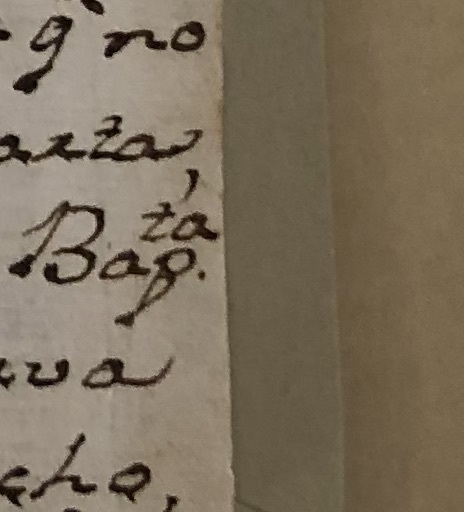 q no
arta,
Bap.ta
va
cho,